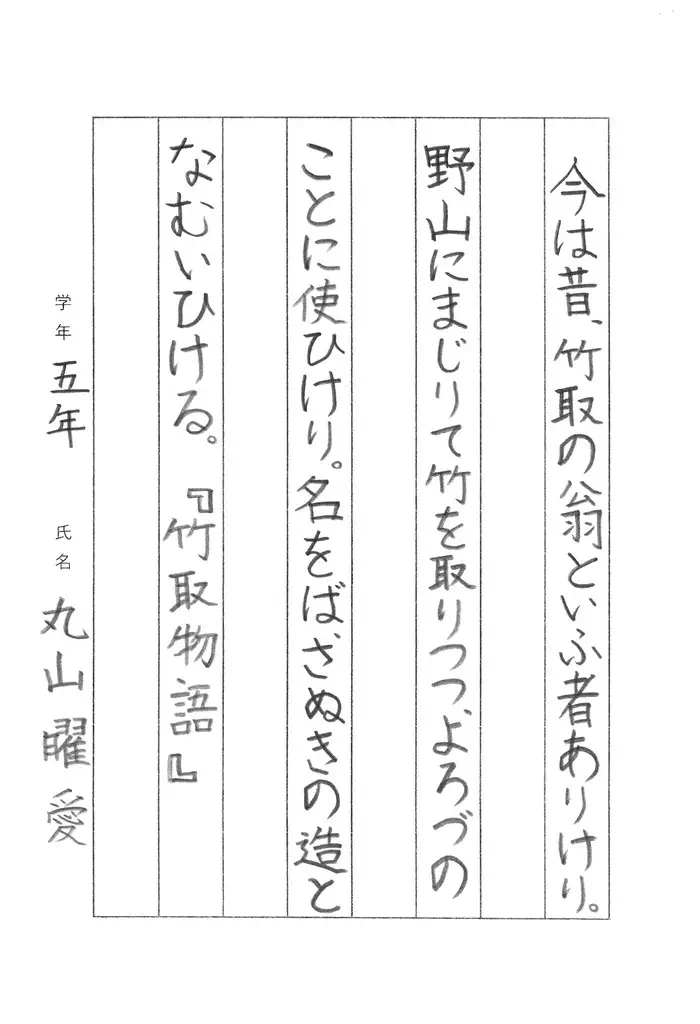 今は昔、竹取の翁といふ者ありけり。
野山にまじりて竹を取りつつ、よろづの
ことに使ひけり。名をば、さぬきの造と
なむいひける。『竹取物語』
学年 五年 氏名 丸山曜愛